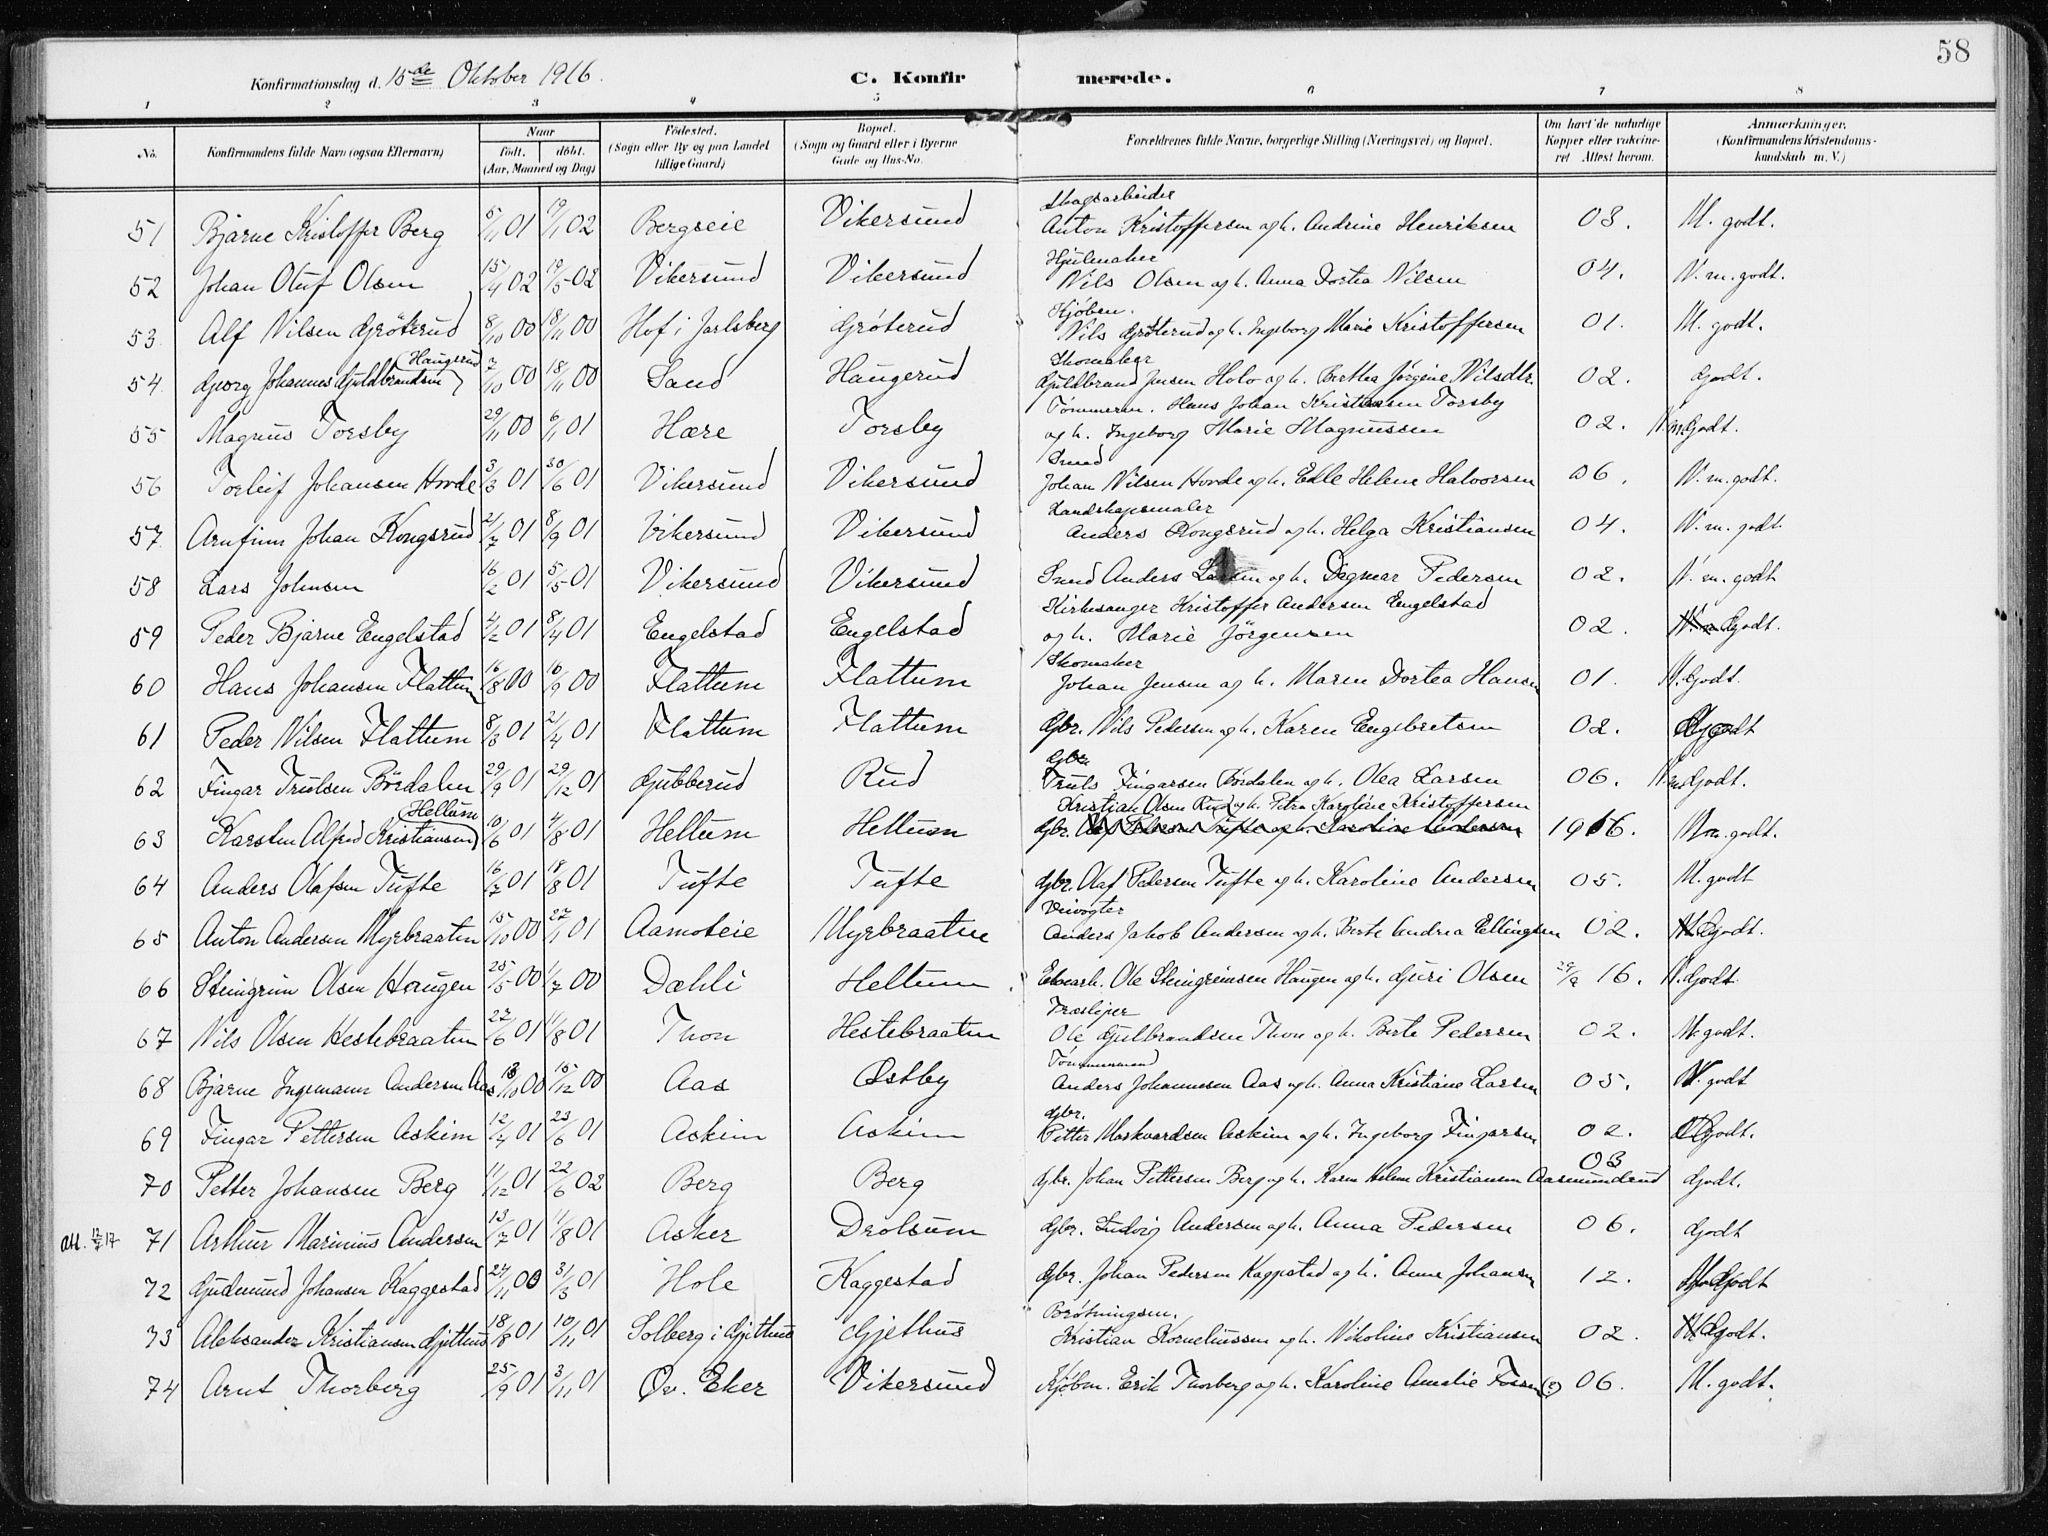 58
Konfirmationsdag d. 15de Oktober 1916. C. Konfirmerede.
1 2 3 4 5 6 7 8
No. Konfirmandens fulde Navn (ogsaa Efternavn) Naar født. døbt. (Aar, Maaned og Dag) Fødested. (Sogn eller By og paa Landet tillige Gaard) Bopæl. (Sogn og Gaard eller i Byerne Gade og Hus-No. Forældrenes fulde Navne, borgerlige Stilling (Næringsvei) og Bopæl. Om havt de naturlige Kopper eller vakcineret Attest herom. Anmærkninger. (Konfirmandens Kristendomskundskab m. V.)
Skogsarbeider
51 Bjarne Kristoffer Berg 5/11 01 19/1 02 Bergseie Vikersund Anton Kristoffersen og h. Andrine Henriksen 03. M. godt.
Hjulmaker
52 Johan Oluf Olsen 15/4 02 19/5 02 Vikersund Vikersund Nils Olsen og h. Anna Dortea Nilsen 04. N. m. godt.
Kjøbm.
53 Alf Nilsen Grøterud 8/10 00 18/11 00 Hof i Jarlsberg Grøterud Nils Grøterud og h. Ingeborg Marie Kristoffersen 01. M. godt.
Haugerud Skomaker
54 Georg Johannes Guldbrandsen 7/10 00 18/11 00 Sand Haugerud Guldbrand Jensen Holo og h. Berthea Jørgine Nilsdtr. 02. Godt.
Tømmerm. Hans Johan Kristiansen Torsby
55 Magnus Torsby 29/11 00 6/1 01 Hære Torsby og h. Ingeborg Marie Magnussen 02. Godt.
Smed
56 Torleif Johansen Hovde 3/3 01 30/6 01 Vikersund Vikersund Johan Nilsen Hovde og h. Edle Helene Halvorsen 06. N. m. godt.
Landskapsmaler
57 Arnfinn Johan Kongsrud 21/7 01 8/9 01 Vikersund Vikersund Anders Kongsrud og h. Helga Kristiansen 04. N. m. godt.
58 Lars Johnsen 16/2 01 5/5 01 Vikersund Vikersund Smed Anders Larsen og h. Dagmar Pedersen 02. N. m. godt
Kirkesanger Kristoffer Andersen Engelstad
59 Peder Bjarne Engelstad 4/12 01 8/4 01 Engelstad Engelstad og h. Marie Jørgensen 02. Godt.
Skomaker
60 Hans Johansen Flattum 16/8 00 16/9 00 Flattum Flattum Johan Jensen og h. Maren Dortea Hansen 01. Godt.
61 Peder Nilsen Flattum 8/3 01 21/4 01 Flattum Flattum Gbr. Nils Pedersen og h. Karen Engebretsen 02. Godt
Gbr.
62 Fingar Trulsen Bördalen 29/9 01 29/12 01 Gubberud Rud Truls Fingarsen Bördalen og h. Olea Larsen 06. Godt.
Hellum Kristian Olsen Rud og h. Petra Karoline Kristoffersen
63 Karsten Alfred Kristiansen 10/6 01 4/8 01 Hellum Hellum Gbr. Olaf Pedersen Tufte og h. Karoline Andersen 1916. M. godt.
64 Anders Olafsen Tufte 16/7 01 18/8 01 Tufte Tufte Gbr. Olaf Pedersen Tufte og h. Karoline Andersen 05. M. godt
Veivogter
65 Anton Andersen Myrbraaten 15/10 00 27/1 01 Aamoteie Myrbraaten Anders Jakob Andersen og h. Berte Andrea Ellingsen 02. Godt.
66 Steingrim Olsen Haugen 25/5 00 1/7 00 Dæhli Hellum Ole Steingrimsen Haugen og h. Guri Olsen 29/9 16. Godt.
Træsliper
67 Nils Olsen Hestebraaten 22/6 01 11/8 01 Thon Hestebraaten Ole Gulbrandsen Thon og h. Berte Pedersen 02. M. godt.
Tømmermand
68 Bjarne Ingemann Andersen Aas 13/10 00 16/12 00 Aas Østby Anders Johannesen Aas og h. Anna Kristiane Larsen 05. godt
Gbr.
69 Fingar Pettersen Askim 12/4 01 23/6 01 Askim Askim Petter Markvardsen Askim og h. Ingeborg Fingarsen 02. Godt.
70 Petter Johansen Berg 11/12 01 22/6 02 Berg Berg Gbr. Johan Pettersen Berg og h. Karen Helene Kristiansen Aasmundrud 03 Godt.
Att. 12/7 17 71 Arthur Marinius Andersen 13/7 01 11/8 01 Asker Drolsum Gbr. Ludvig Andersen og h. Anna Pedersen 06. Godt
72 Gudmund Johansen Kaggestad 24/11 00 3/3 01 Hole Kaggestad Gbr. Johan Pedersen Kaggestad og h. Anne Johansen 12. Godt
Brøtningsm.
73 Aleksander Kristiansen Gjethus 18/8 01 10/11 01 Solberg i Gjethus Gjethus Kristian Korneliussen og h. Nikoline Kristiansen 02. Godt.
74 Arnt Thorberg 25/9 01 3/11 01 Øv. Eker Vikersund Kjøbm. Erik Thorberg og h. Karoline Amalie Fossen (?) 06. M. godt.